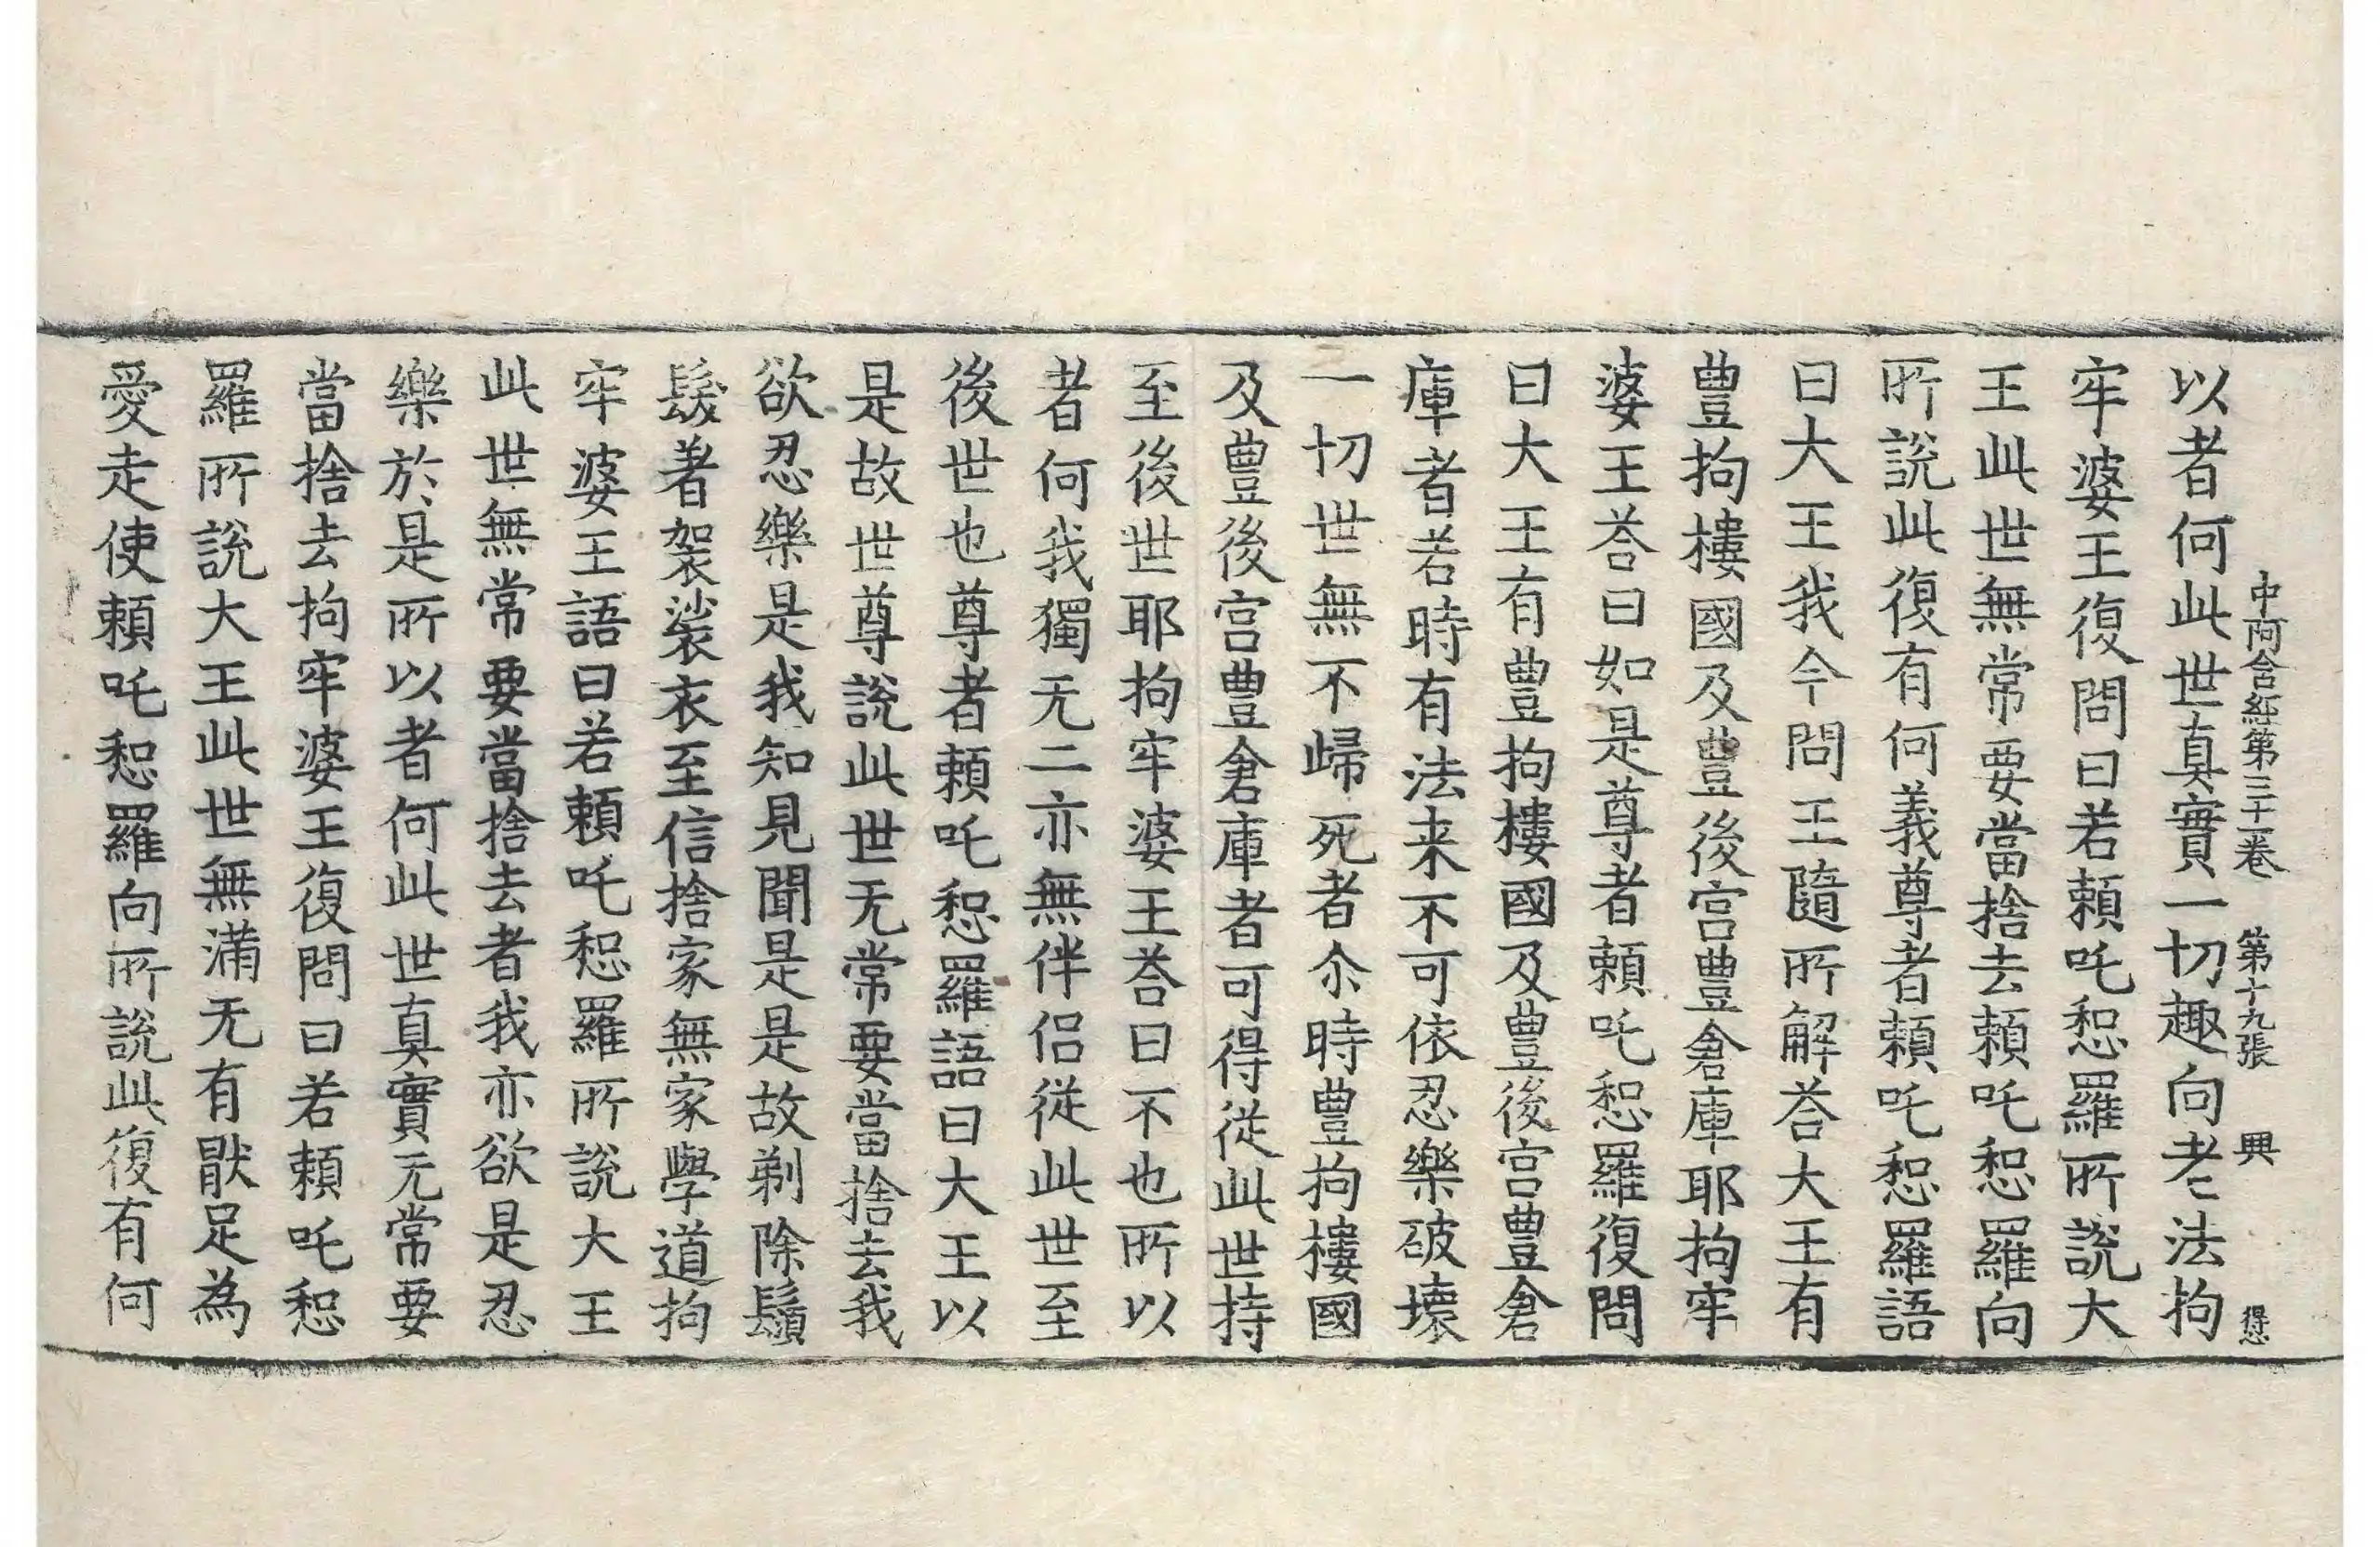 中阿含經第三十一卷 第十九張 興 得忠
以者何此世真實一切趣向老法拘
牢婆王復問曰若賴吒惒羅所說大
王此世無常要當捨去賴吒惒羅向
所說此復有何義尊者賴吒惒羅語
曰大王我今問王隨所解荅大王有
豊拘樓國及豊後宮豊倉庫耶拘牢
婆王荅曰如是尊者賴吒惒羅復問
曰大王有豊拘樓國及豊後宮豊倉
庫者若時有法来不可依忍樂破壊
一切世無不歸死者尒時豊拘樓國
及豊後宮豊倉庫者可得從此世持
至後世耶拘牢婆王荅曰不也所以
者何我獨无二亦無伴侣從此世至
後世也尊者賴吒惒羅語曰大王以
是故世尊說此世无常要當捨去我
欲忍樂是我知見聞是是故剃除鬚
髮著袈裟衣至信捨家無家學道拘
牢婆王語曰若賴吒惒羅所說大王
此世無常要當捨去者我亦欲是忍
樂於是所以者何此世真實无常要
當捨去拘牢婆王復問曰若賴吒惒
羅所說大王此世無滿无有猒足為
愛走使賴吒惒羅向所說此復有何